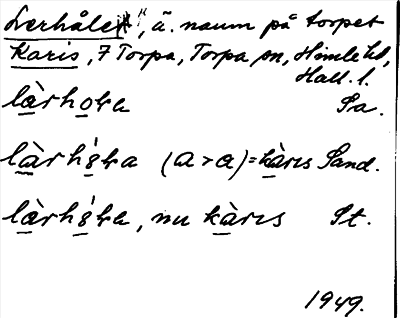 Lerhålet", ä. namn på torpet
Karis, 7 Torpa, Torpa sn, Himle hd,
Hall. l.
làrhola Sa.
làrhòla (a > a) = kàrıs Sand.
làrhòla, nu kàrıs St.
1949.